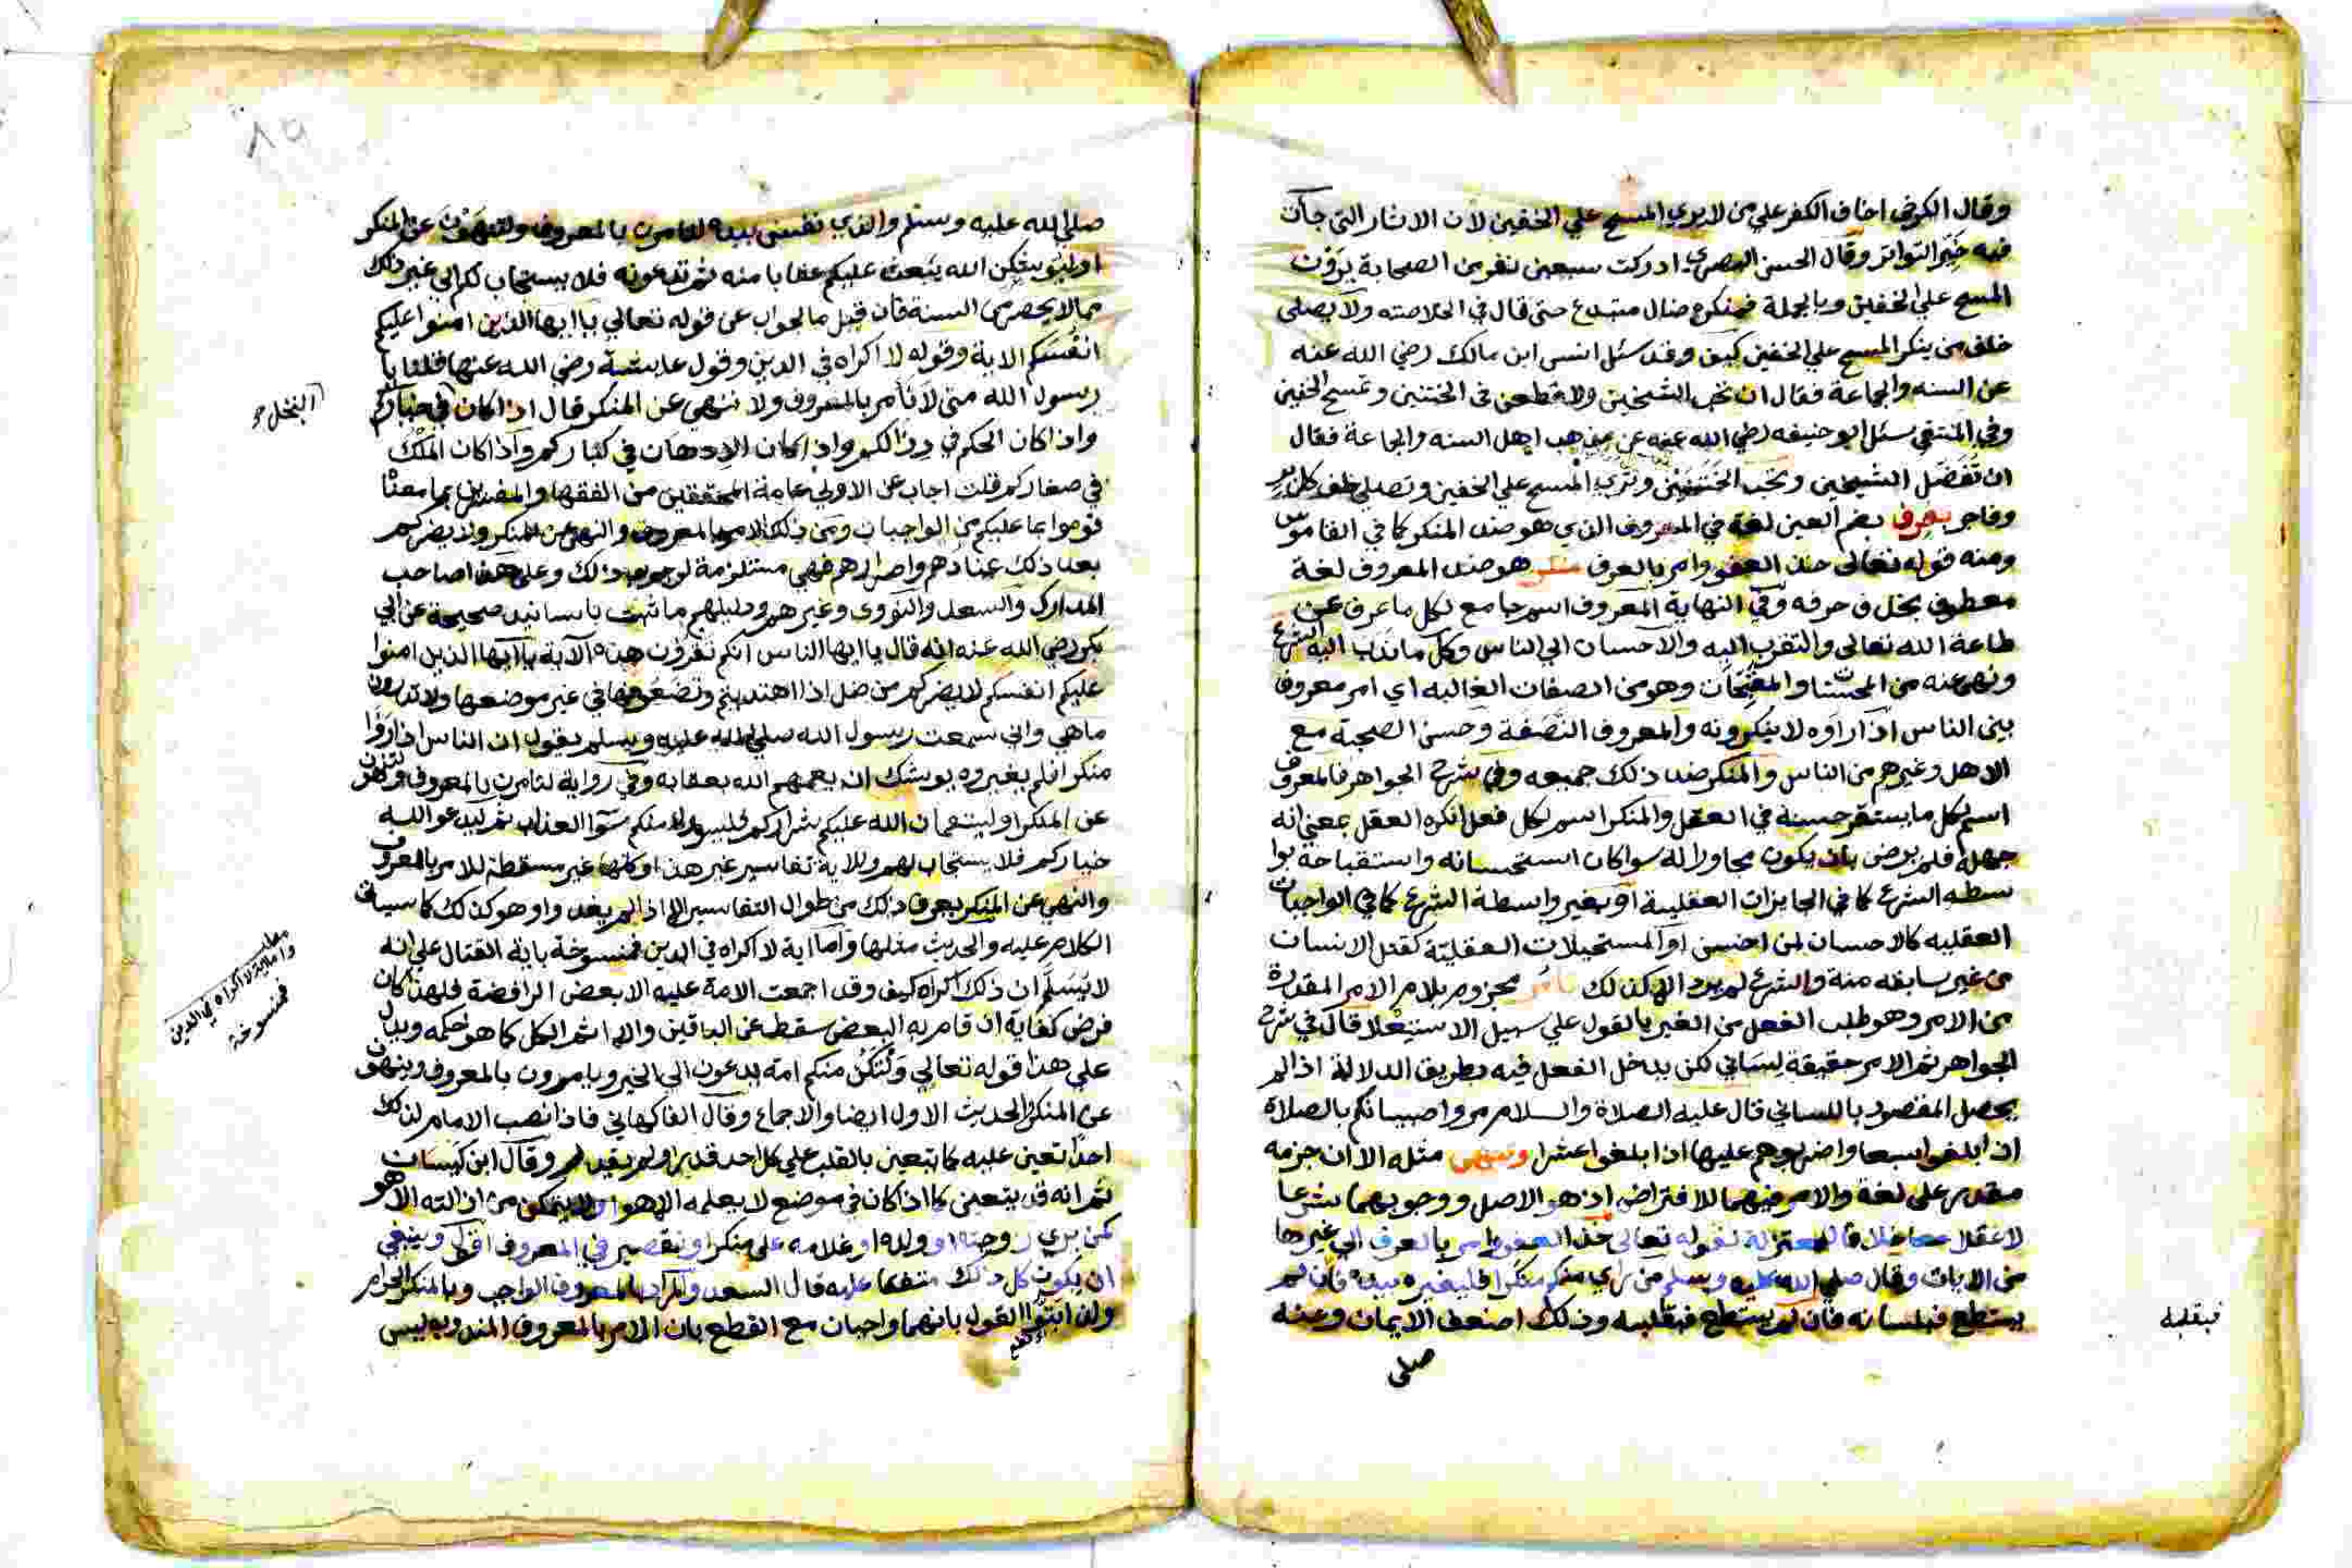 وقال الكرخي اخاف الكفر علي من لا يري المسح علي الخفين لان الاثار التي جات
فيه خير التواتر وقال الحسن البصري ادركت سبعين نفر من الصحابة يرون
المسح علي الخفين وبالجملة فمنكره ضال مبتدع حتى قال في الخلاصته ولا يصلى
خلف من ينكر المسح علي الخفين كيف وقد سئل انس ابن مالك رضي الله عنه
عن السنه والجماعة فقال ان تحب الشيخين ولا تطعن في الختنين وتمسح الخفين
وفي المنتقي سئل ابو حنيفه رضي الله عنه عن مذهب اهل السنه والجاعة فقال
ان تفضل الشيخين وتحب الختنين وتري المسح علي الخفين وتصلي خلف كل بر
وفاجر بعرف بضم العين لغة في المعروف الذي هو ضد المنكر كما في القاموس
ومنه قوله تعالى خذ العفو وامر بالعرف منكر هو ضد المعروف لغة
معطوف بحذف حرفه وفي النهاية المعروف اسم جامع لكل ما عرف عن
طاعة الله تعالى والتقرب اليه والاحسان الي الناس وكل ما ندب اليه الشرع
ونهي عنه من المحسنات والمقبحات وهو من الصفات الغالبه اي امر معروف
بين الناس اذا راوه لا ينكرونه والمعروف النصفة وحسن الصحبة مع
الاهل وغيرهم من الناس والمنكر ضد ذلك جميعه وفي شرح الجواهر فالمعروف
اسم لكل ما يستقر حسنه في العقل والمنكر اسم لكل فعل انكره العقل بمعني انه
جهله فلم يرض بان يكون مجاورا له سوا كان استحسانه واستقباحه بوا
سطه الشرع كما في الجايزات العقلية او بغير واسطة الشرع كما في الواجبات
العقليه كالاحسان لمن احسن او المستحيلات العقليته كقتل الانسان
من غير سابقه منه والشرع لم يرد الا كذلك تامر مجزوم بلام الامر المقدرة
من الامر وهو طلب الفعل من الغير بالقول علي سبيل الاستيعلا قال في شرح
الجواهر ثم الامر حقيقة لساني لكن يدخل الفعل فيه بطريق الدلالة اذا لم
يحصل المقصود باللساني قال عليه الصلاة والسلام مروا صبيانكم بالصلاة
اذا بلغوا سبعا واضربوهم عليها اذا بلغوا عشرا وتنهى مثله الا ان جزمه
مقدر علي لغة والامر فيهما للافتراض اذ هو الاصل ووجوبهما شرعا
لا عقلا خلافا للمعتزلة لقوله تعالى خذ العفو وامر بالعرف الي غيرها
من الايات وقال صلي الله عليه وسلم من راي منكم منكرا فليغيره بيده فان لم
يستطع فبلسانه فان لم يستطع فبقلبه وذلك اضعف الايمان وعنه
فبقلبه
صلى
٨٩
صلي الله عليه وسلم والذي نفسي بيده لتامرن بالمعروف ولتنهون عن المنكر
او ليوشكن الله يبعث عليكم عقابا منه ثم تدعونه فلا يستجاب لكم الي غير ذلك
مما لا يحصر من السنة فان قيل ما الجواب عن قوله تعالي يا ايها الذين امنوا عليكم
انفسكم الاية وقوله لا اكراه في الدين وقول عايشة رضي الله عنها قلنا يا
رسول الله متى لا نامر بالمعروف ولا ننهي عن المنكر قال اذا كان في خياركم
البخل
واذا كان الحكم في رذالكم واذا كان الادهان في كباركم واذا كان الملك
في صغاركم قلت اجاب عن الاولي عامة المحققين من الفقها والمفسرين بما معنا
قوموا بما عليكم من الواجبات ومن ذلك الامر بالمعروف والنهي عن المنكر ولا يضركم
بعد ذلك عنادهم واصرارهم فهي مستلزمة لوجوب ذلك وعلي هذا صاحب
المدارك والسعد والنووي وغيرهم ودليلهم ما ثبت باسانيد صحيحة عن ابي
بكر رضي الله عنه انه قال يا ايها الناس انكم تقرؤن هذه الآية يا ايها الذين امنوا
عليكم انفسكم لا يضركم من ضل اذا اهتديتم وتضعوها في غير موضعها ولا تدرون
ما هي واني سمعت رسول الله صلي الله عليه وسلم يقول ان الناس اذا راوا
منكرا فلم يغيروه يوشك ان يعمهم الله بعقابه وفي رواية لتامرن بالمعروف ولتنهون
عن المنكر او ليستعملن الله عليكم شراركم فليسومونكم سوا العذاب ثم ليدعو الله
خياركم فلا يستجاب لهم وللاية تفاسير غير هذا وكلها غير مسقطة للامر بالمعروف
والنهي عن المنكر يعرف ذلك من طوال التفاسير الا اذا لم يفد او هو كذلك كما سياتي
الكلام عليه والحديث مثلها واما اية لا اكراه في الدين فمنسوخة باية القتال علي انه
واما اية لا اكراه في الدين
فمنسوخة
لا يسلم ان ذلك اكراه كيف وقد اجمعت الامة عليه الا بعض الرافضة فلهذا كان
فرض كفاية ان قام به البعض سقط عن الباقين والا اثم الكل كما هو حكمه ويدل
علي هذا قوله تعالي ولتكن منكم امة يدعون الي الخير ويامرون بالمعروف وينهون
عن المنكر والحديث الاول ايضا والاجماع وقال الفاكهاني فاذا نصب الامام لذلك
احدا تعين عليه كما يتعين بالقلب علي كل احد قدر او لم يقدر وقال ابن كيسان
ثم انه قد يتعين كما اذا كان في موضع لا يعلمه الا هو او لا يتمكن من ازالته الا هو
كمن يري زوجته او ولده او غلامه علي منكر او تقصير في المعروف اقول وينبغي
ان يكون كل ذلك متفقا عليه قال السعد والمراد بالمعروف الواجب وبالمنكر الحرام
ولذا ابتوا القول بانهما واجبان مع القطع بان الامر بالمعروف المندوب ليس